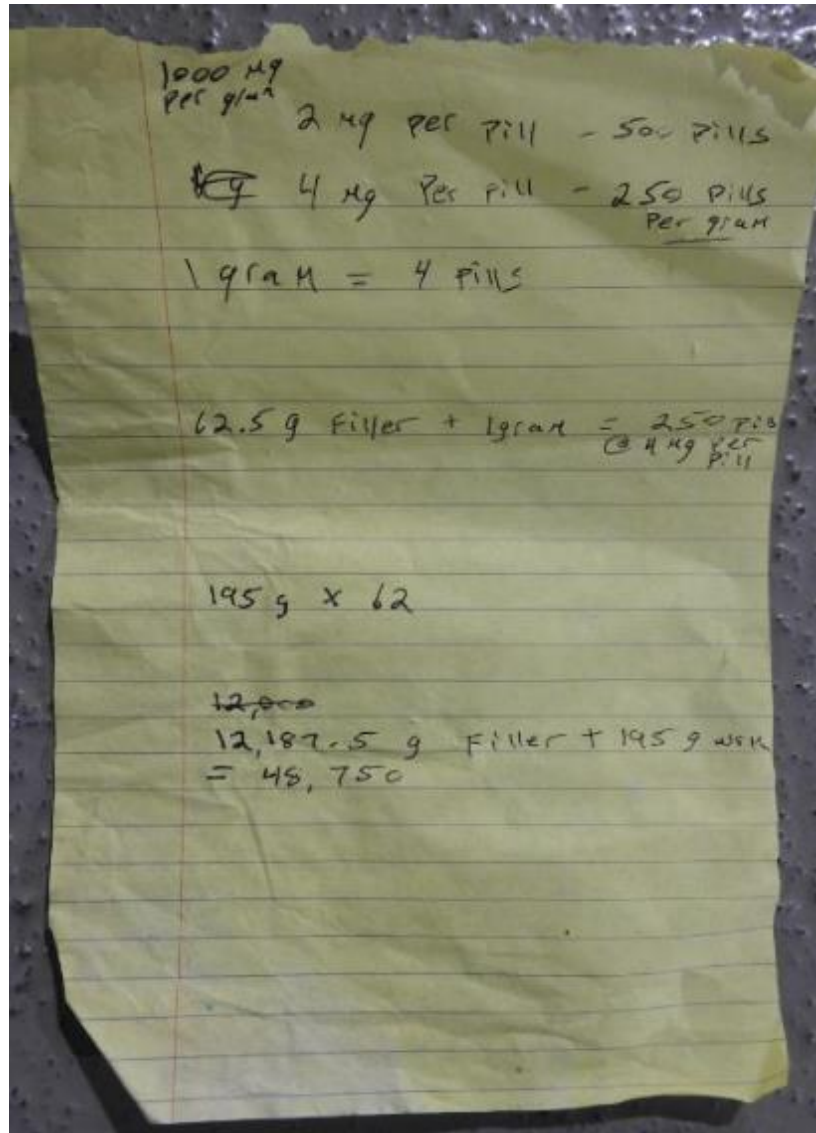 1000 mg
per gram
2 mg per pill - 500 pills
4 mg per pill - 250 pills
per gram
1 gram = 4 pills
62.5 g Filler + 1gram = 250 pills
@ 4 mg per
pill
195 g x 62
12,000
12,187.5 g Filler + 195 g
= 48,750